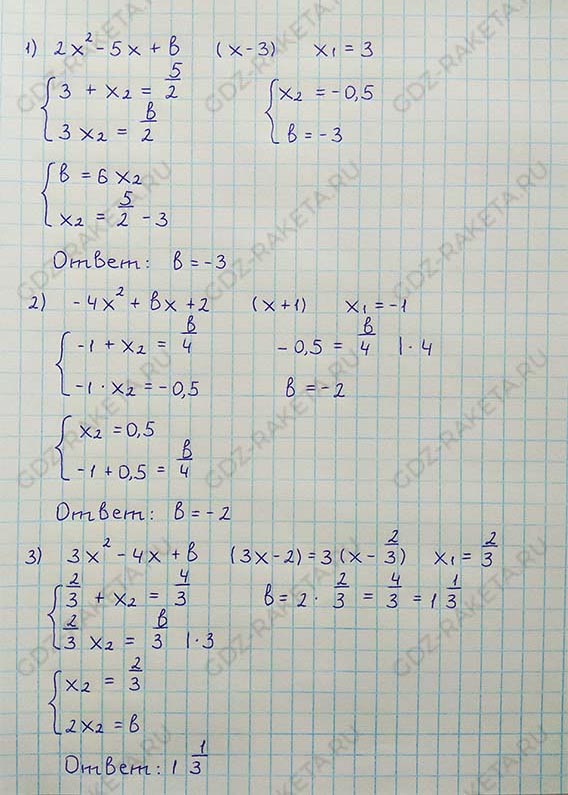 1) 2x² - 5x + в (x-3) x₁ = 3
{ 3 + x₂ = 5/2
3x₂ = в/2
{ x₂ = -0,5
в = -3
{ в = 6x₂
x₂ = 5/2 - 3
Ответ: в = -3
2) -4x² + вx + 2 (x+1) x₁ = -1
{ -1 + x₂ = в/4
-1 · x₂ = -0,5
-0,5 = в/4 | · 4
в = -2
{ x₂ = 0,5
-1 + 0,5 = в/4
Ответ: в = -2
3) 3x² - 4x + в (3x-2) = 3(x - 2/3) x₁ = 2/3
{ 2/3 + x₂ = 4/3
2/3 x₂ = в/3 | · 3
в = 2 · 2/3 = 4/3 = 1 1/3
{ x₂ = 2/3
2x₂ = в
Ответ: 1 1/3
GDZ-RAKETA.RU